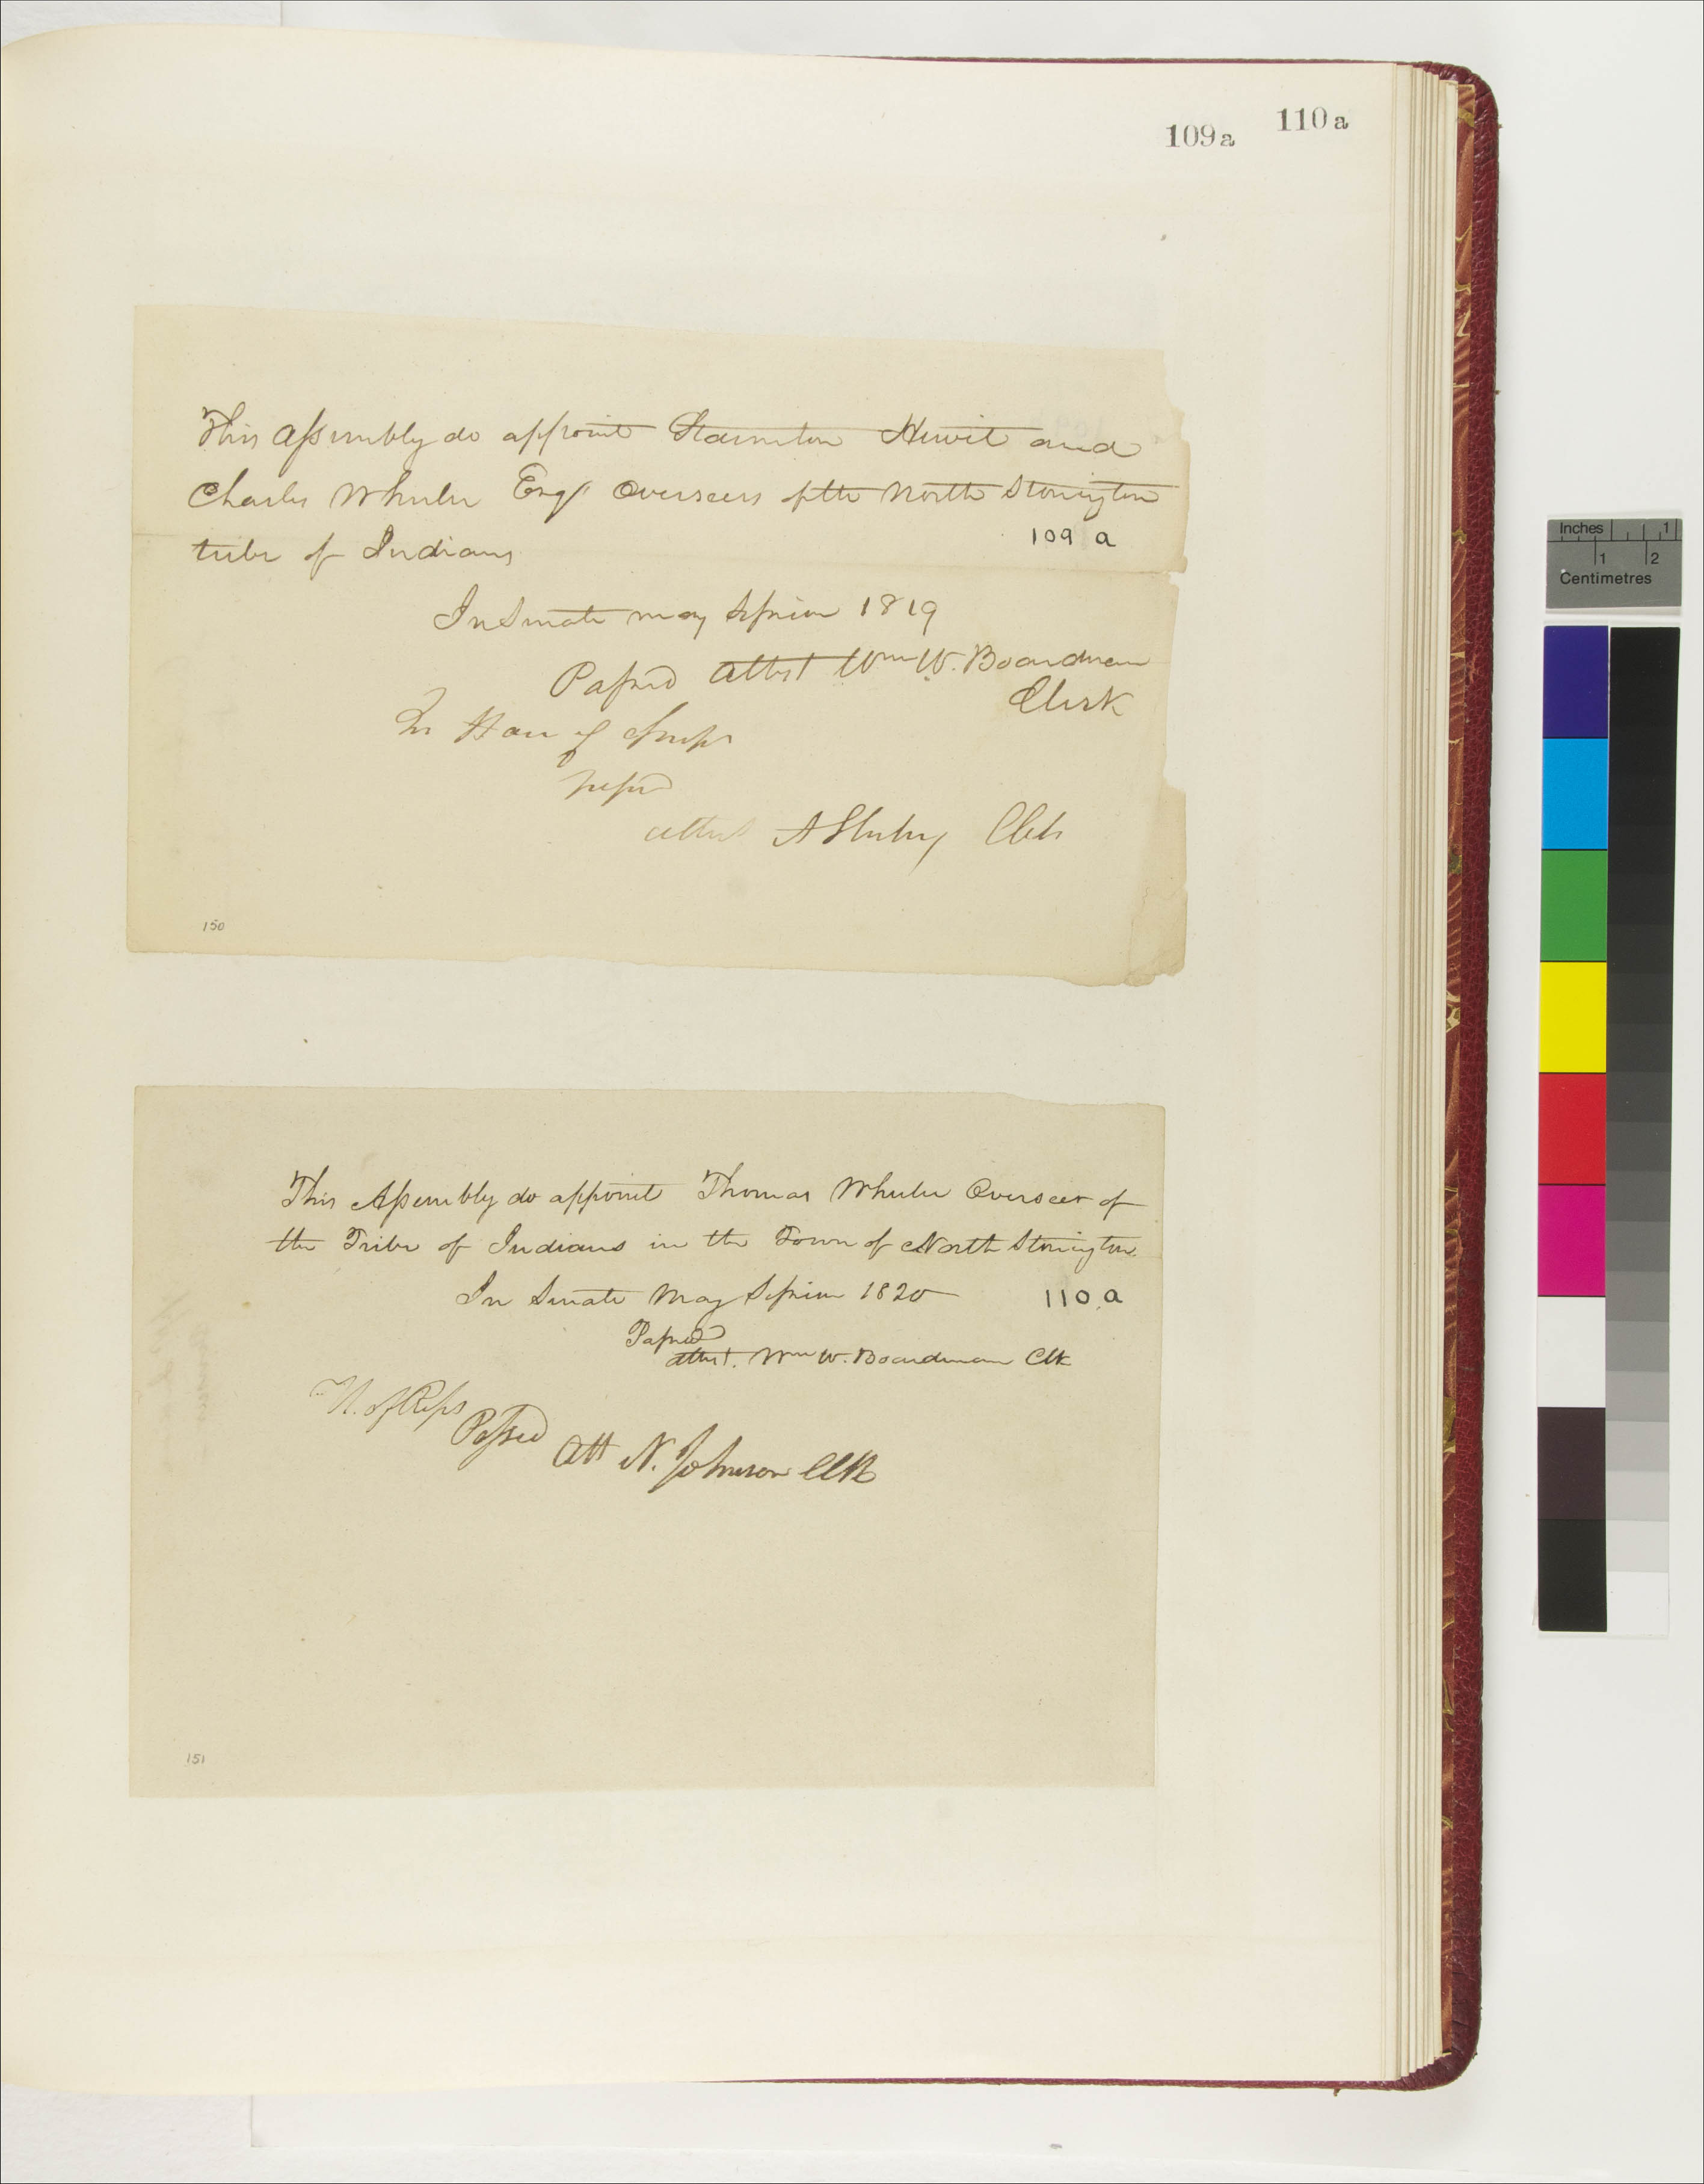 109a 110a
This Assembly do appoint Staunton Hewit and
Charles Wheeler Esqr Overseers of the North Stonington
tribe of Indians
109 a
In Senate may Session 1819
Passed attest Wm W. Boardman
Clerk
In House of Reps
passed
attest Clk
150
This Assembly do appoint Thomas Wheeler Overseer of
the Tribe of Indians in the Town of North Stonington
In Senate May Session 1820
110 a
Passed
attest. Wm W. Boardman Clk
H. of Reps
Passed
Att N. Johnson Clk
151
Inches 1
1 2
Centimetres